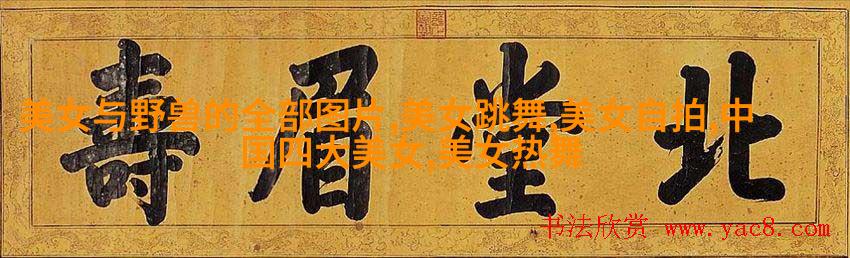 北堂眉壽
美女与野兽的全部图片,美女跳舞,美女自拍,中
国四大美女,美女热舞
书法欣赏 www.yac8.com